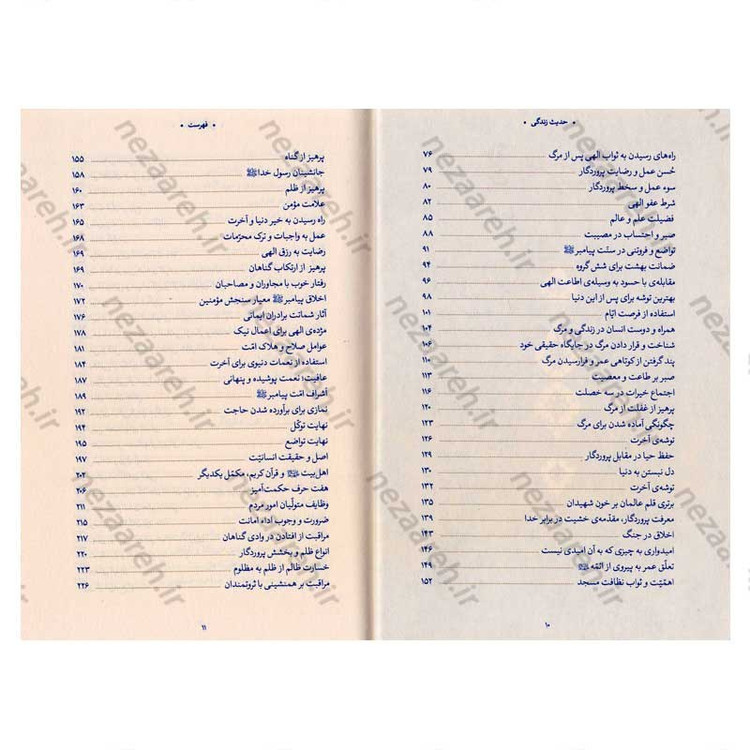 • حدیث زندگی •
راه‌های رسیدن به ثواب الهی پس از مرگ ۷۶
حُسن عمل و رضایت پروردگار ۷۹
سوء عمل و سخط پروردگار ۸۰
شرط عفو الهی ۸۲
فضیلت علم و عالم ۸۵
صبر و احتساب در مصیبت ۸۸
تواضع و فروتنی در سنّت پیامبر ﷺ ۹۱
ضمانت بهشت برای شش گروه ۹۴
مقابله‌ی با حسود به وسیله‌ی اطاعت الهی ۹۶
بهترین توشه برای پس از این دنیا ۹۸
استفاده از فرصت ایّام ۱۰۱
همراه و دوست انسان در زندگی و مرگ ۱۰۴
شناخت و قرار دادن مرگ در جایگاه حقیقی خود ۱۰۶
پند گرفتن از کوتاهی عمر و فرارسیدن مرگ ۱۱۰
صبر بر طاعت و معصیت ۱۱۳
اجتماع خیرات در سه خصلت ۱۱۶
پرهیز از غفلت از مرگ ۱۲۰
چگونگی آماده شدن برای مرگ ۱۲۳
توشه‌ی آخرت ۱۲۶
حفظ حیا در مقابل پروردگار ۱۲۹
دل نبستن به دنیا ۱۳۰
توشه‌ی آخرت ۱۳۲
برتری قلم عالمان بر خون شهیدان ۱۳۵
معرفت پروردگار، مقدّمه‌ی خشیت در برابر خدا ۱۳۹
اخلاق در جنگ ۱۴۳
امیدواری به چیزی که به آن امیدی نیست ۱۴۶
تعلّق عمر به پیروی از ائمّه ۱۴۹
اهمّیّت و ثواب نظافت مسجد ۱۵۲
۱۰
• فهرست •
پرهیز از گناه ۱۵۵
جانشینان رسول خدا ﷺ ۱۵۸
پرهیز از ظلم ۱۶۰
علامت مؤمن ۱۶۳
راه رسیدن به خیر دنیا و آخرت ۱۶۵
عمل به واجبات و ترک محرّمات ۱۶۸
رضایت به رزق الهی ۱۶۹
پرهیز از ارتکاب گناهان ۱۶۹
رفتار خوب با مجاوران و مصاحبان ۱۷۰
اخلاق پیامبر ﷺ معیار سنجش مؤمنین ۱۷۲
آثار شماتت برادران ایمانی ۱۷۶
مژده‌ی الهی برای اعمال نیک ۱۷۸
عوامل صلاح و هلاک امّت ۱۸۱
استفاده از نعمات دنیوی برای آخرت ۱۸۴
عافیت؛ نعمت پوشیده و پنهانی ۱۸۷
اَشراف امّت پیامبر ﷺ ۱۸۹
نمازی برای برآورده شدن حاجت ۱۹۳
نهایت توکّل ۱۹۴
نهایت تواضع ۱۹۵
اصل و حقیقت انسانیّت ۱۹۷
اهل‌بیت و قرآن کریم، مکمّل یکدیگر ۲۰۲
هفت حرف حکمت‌آمیز ۲۰۶
وظایف متولّیان امور مردم ۲۱۱
ضرورت و وجوب اداء امانت ۲۱۵
مراقبت از افتادن در وادی گناهان ۲۱۷
انواع ظلم و بخشش پروردگار ۲۲۰
خسارت ظالم از ظلم به مظلوم ۲۲۳
مراقبت بر همنشینی با ثروتمندان ۲۲۶
۱۱
nezaareh.ir